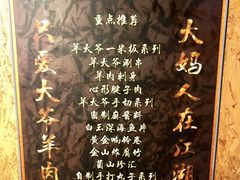 大妈人在江湖
重点推荐
羊大爷一米板系列
羊大爷涮串
羊肉刺身
心形腱子肉
羊大爷手切系列
密制麻酱料
白玉深海鱼片
黄金响铃卷
金山炸腐竹
菌山珍汇
自制手打丸子系列
只爱大爷羊肉